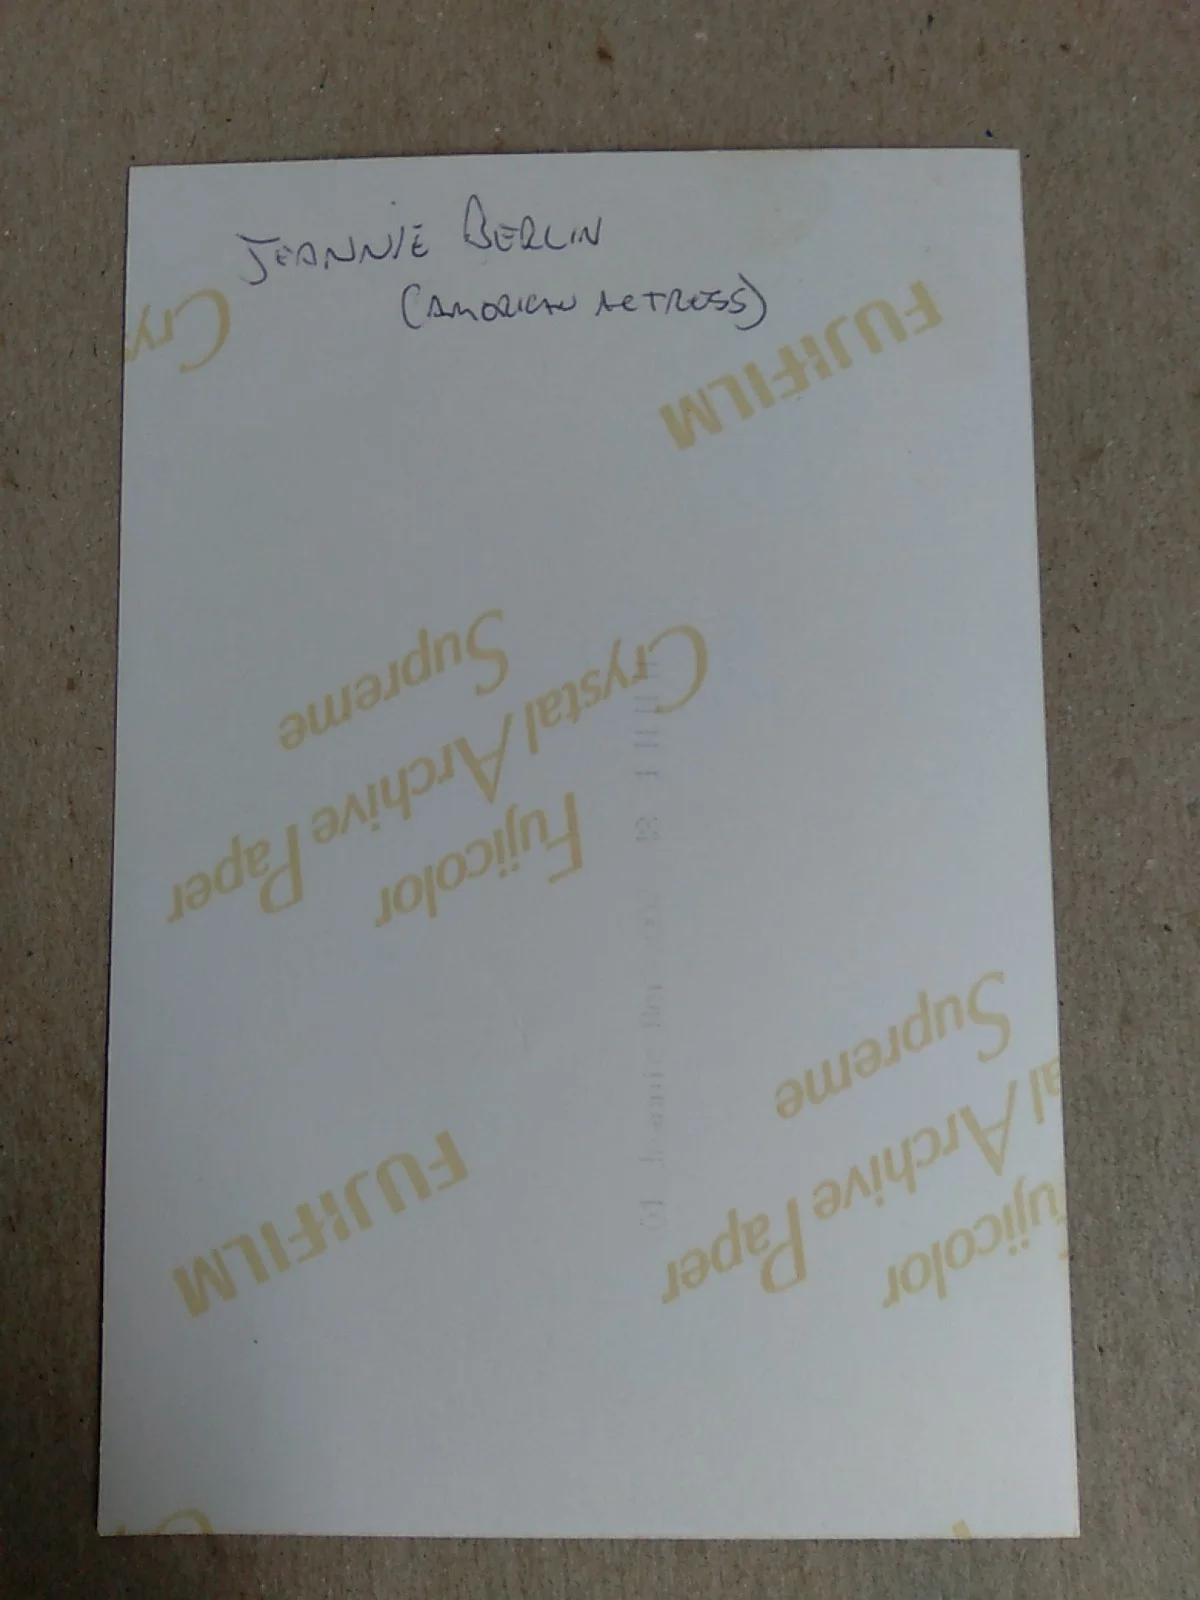 JEANNIE BERLIN
(AMERICAN ACTRESS)
Cry
FUJIFILM
Supreme
Crystal Archive Paper
Fujicolor
Supreme
al Archive Paper
Fujicolor
FUJIFILM